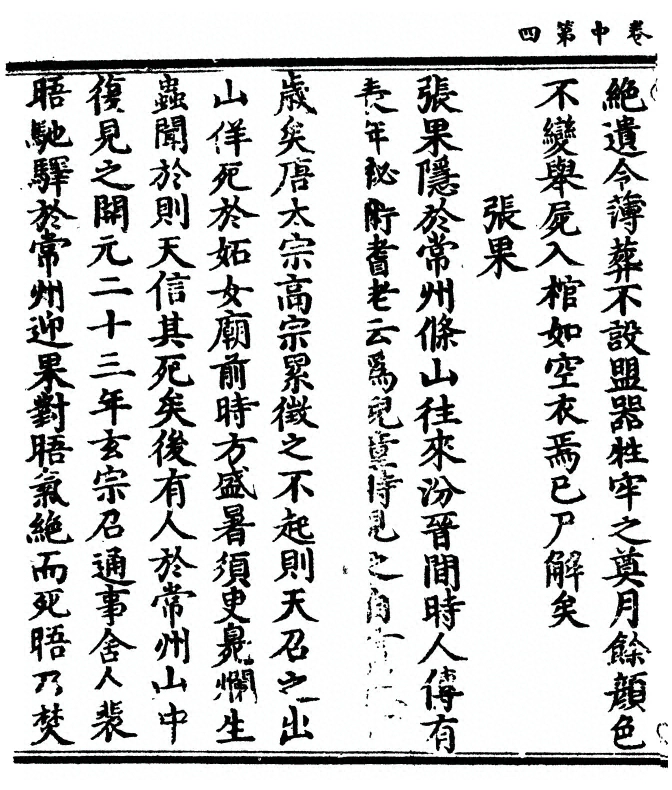 四第中卷
絶遺令薄葬不設盟器牲牢之奠月餘顔色
不變舉屍入棺如空衣焉已尸解矣
張果
張果隱於常州條山往來汾晉間時人傳有
長年秘術耆老云爲兒童時見之自言
歳矣唐太宗高宗累徴之不起則天召之出
山佯死於妬女廟前時方盛暑須臾臭爛生
蟲聞於則天信其死矣後有人於常州山中
復見之開元二十三年玄宗召通事舍人裴
晤馳驛於常州迎果對晤氣絶而死晤乃焚